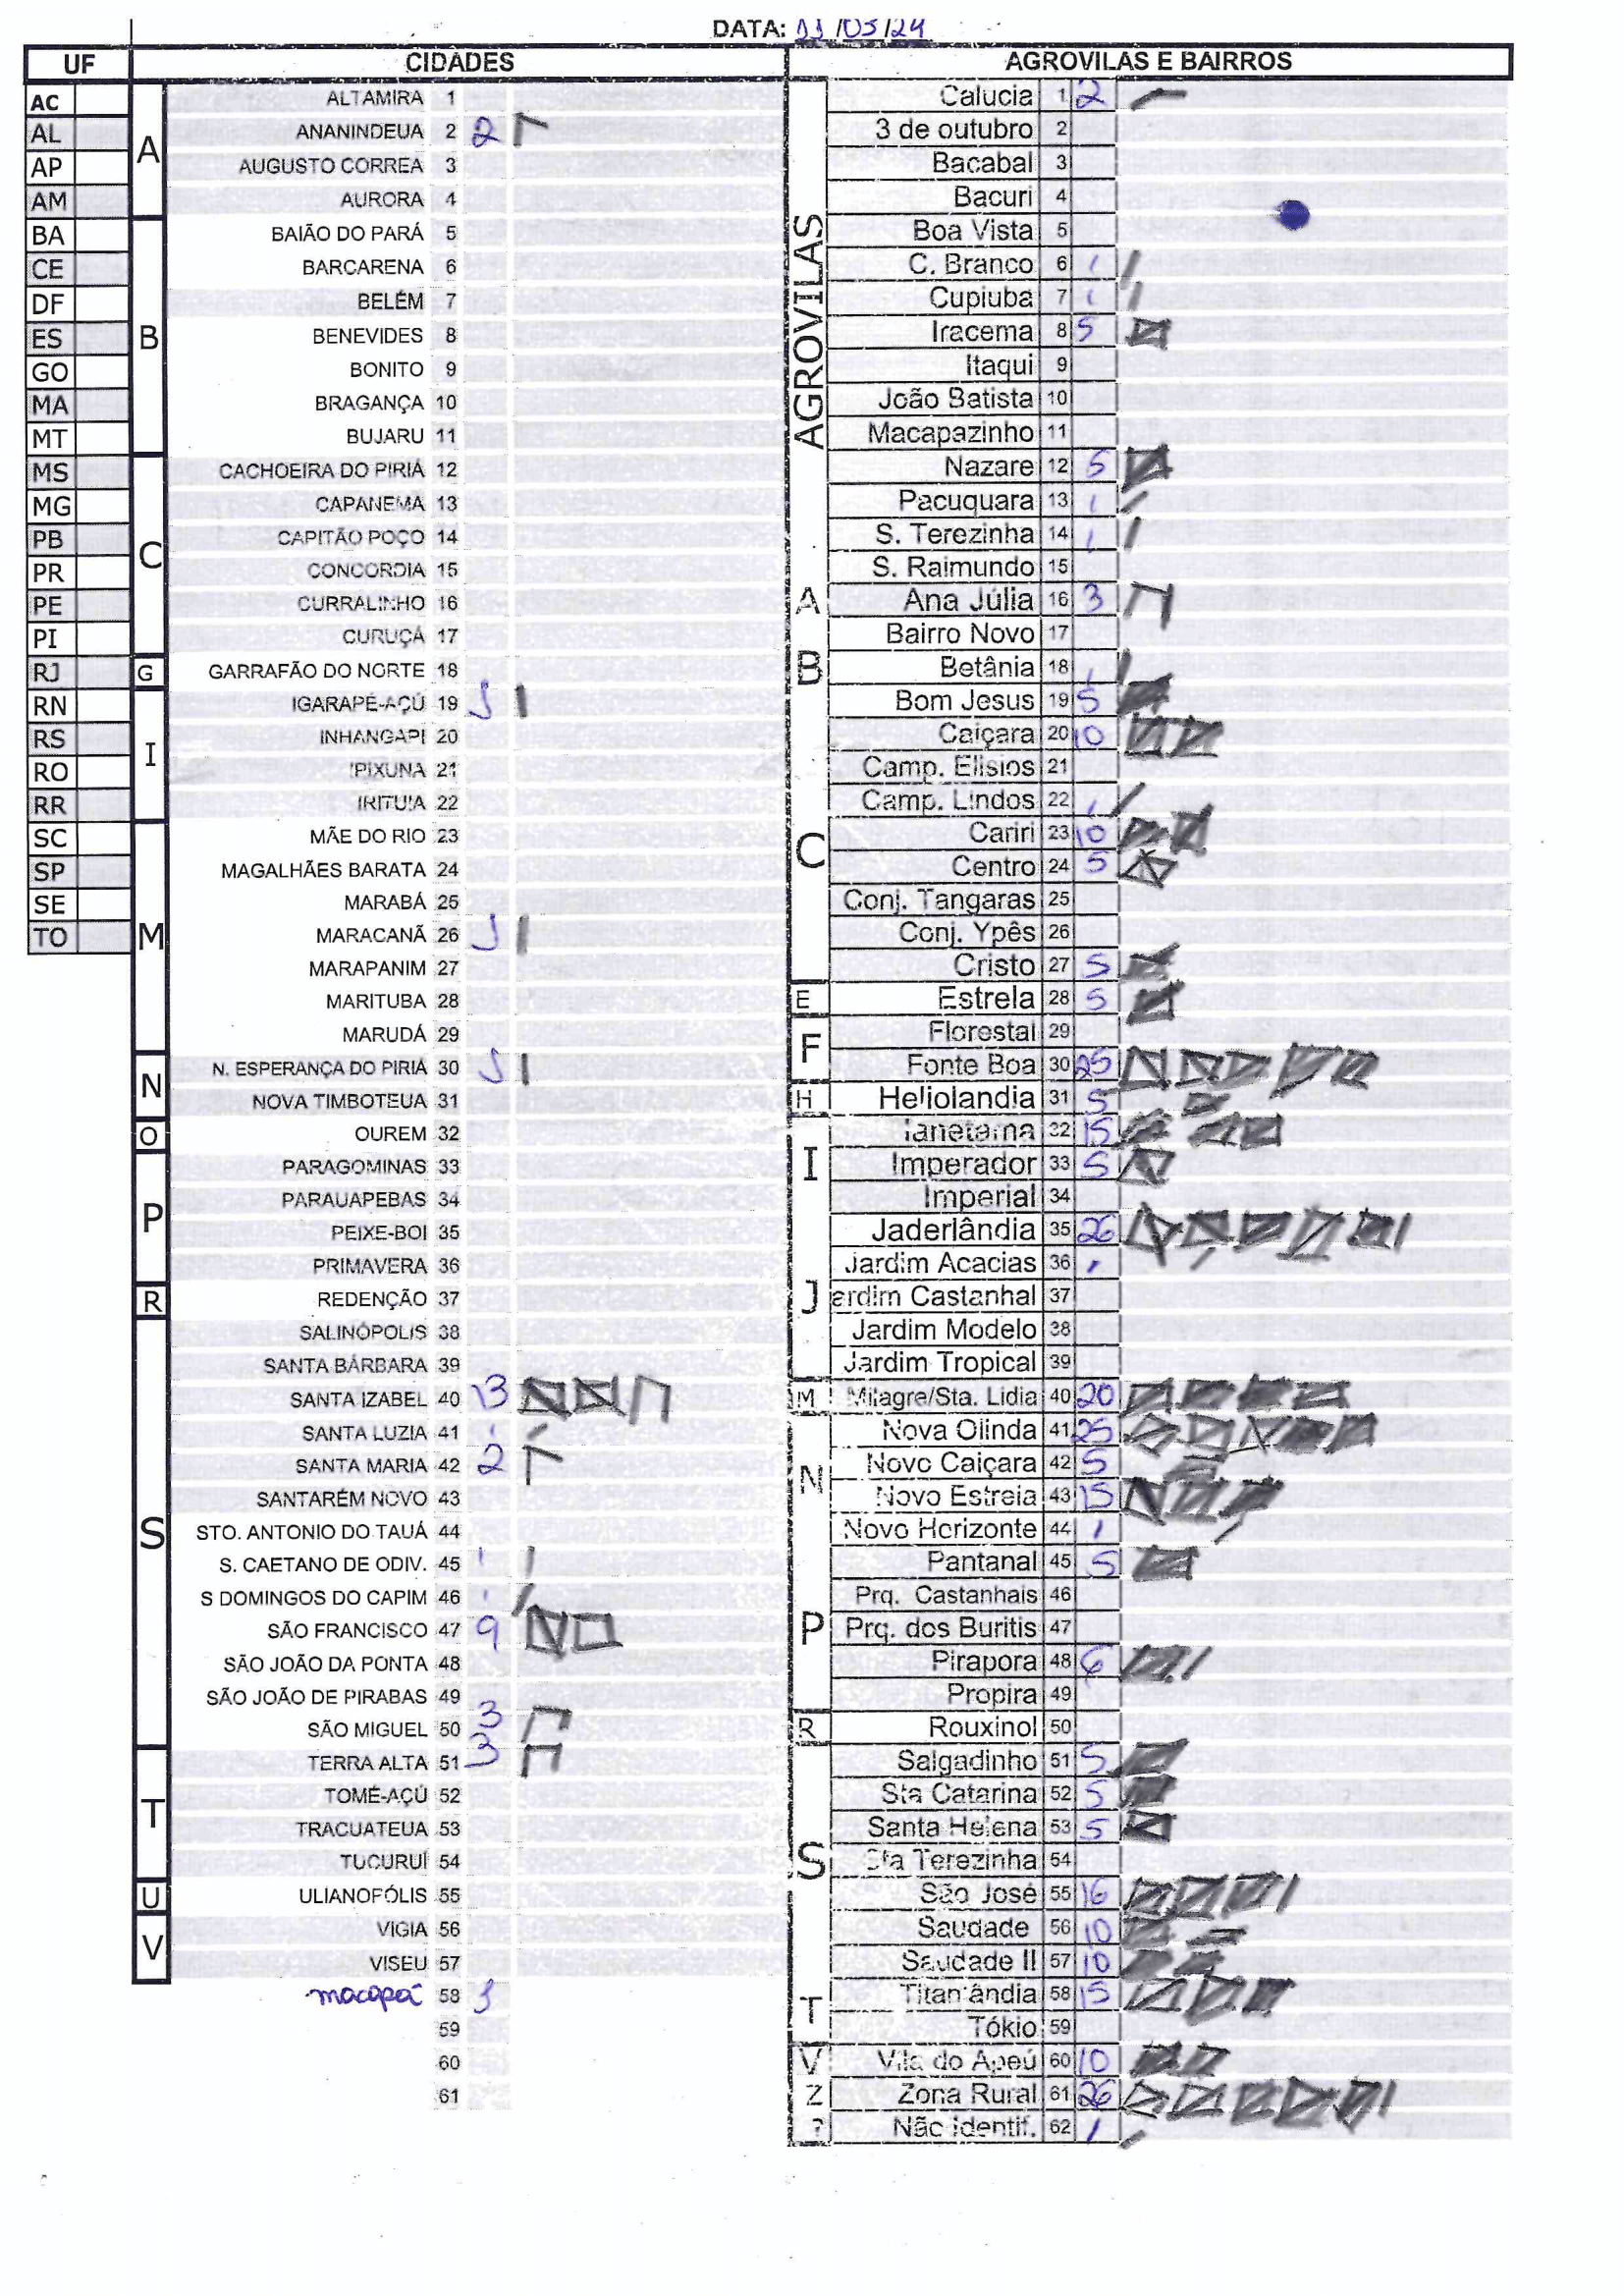 DATA: 11/03/24
UF CIDADES AGROVILAS E BAIRROS
AC
AL
AP
AM
BA
CE
DF
ES
GO
MA
MT
MS
MG
PB
PR
PE
PI
RJ
RN
RS
RO
RR
SC
SP
SE
TO
A
ALTAMIRA 1
ANANINDEUA 2 2
AUGUSTO CORREA 3
AURORA 4
B
BAIÃO DO PARÁ 5
BARCARENA 6
BELÉM 7
BENEVIDES 8
BONITO 9
BRAGANÇA 10
BUJARU 11
C
CACHOEIRA DO PIRIÁ 12
CAPANEMA 13
CAPITÃO POÇO 14
CONCORDIA 15
CURRALINHO 16
CURUÇÁ 17
G
GARRAFÃO DO NORTE 18
I
IGARAPÉ-AÇÚ 19 1
INHANGAPI 20
IPIXUNA 21
IRITUIA 22
M
MÃE DO RIO 23
MAGALHÃES BARATA 24
MARABÁ 25
MARACANÃ 26 1
MARAPANIM 27
MARITUBA 28
MARUDÁ 29
N
N. ESPERANÇA DO PIRIÁ 30 1
NOVA TIMBOTEUA 31
O
OUREM 32
P
PARAGOMINAS 33
PARAUAPEBAS 34
PEIXE-BOI 35
PRIMAVERA 36
R
REDENÇÃO 37
S
SALINÓPOLIS 38
SANTA BÁRBARA 39
SANTA IZABEL 40 13
SANTA LUZIA 41 1
SANTA MARIA 42 2
SANTARÉM NOVO 43
STO. ANTONIO DO TAUÁ 44
S. CAETANO DE ODIV. 45 1
S DOMINGOS DO CAPIM 46 1
SÃO FRANCISCO 47 9
SÃO JOÃO DA PONTA 48
SÃO JOÃO DE PIRABAS 49
SÃO MIGUEL 50 3
T
TERRA ALTA 51 3
TOMÉ-AÇÚ 52
TRACUATEUA 53
TUCURUÍ 54
U
ULIANOPÓLIS 55
V
VIGIA 56
VISEU 57
macapá 58 1
59
60
61
AGROVILAS
Calucia 1 2
3 de outubro 2
Bacabal 3
Bacuri 4
Boa Vista 5
C. Branco 6 1
Cupiuba 7 1
Iracema 8 5
Itaqui 9
João Batista 10
Macapazinho 11
Nazare 12 5
Pacuquara 13 1
S. Terezinha 14 1
S. Raimundo 15
A
Ana Júlia 16 3
B
Bairro Novo 17
Betânia 18 1
Bom Jesus 19 5
C
Caiçara 20 10
Camp. Elisios 21
Camp. Lindos 22 1
Cariri 23 10
Centro 24 5
Conj. Tangaras 25
Conj. Ypês 26
Cristo 27 5
E
Estrela 28 5
F
Florestal 29
Fonte Boa 30 25
H
Heliolandia 31 5
I
Ianetama 32 15
Imperador 33 5
Imperial 34
J
Jaderlândia 35 26
Jardim Acacias 36 1
erdim Castanhal 37
Jardim Modelo 38
Jardim Tropical 39
M
Milagre/Sta. Lidia 40 20
N
Nova Olinda 41 25
Novo Caiçara 42 5
Novo Estrela 43 15
Novo Horizonte 44 1
P
Pantanal 45 5
Prq. Castanhais 46
Prq. dos Buritis 47
Pirapora 48 6
Propira 49
R
Rouxinol 50
S
Salgadinho 51 5
Sta Catarina 52 5
Santa Helena 53 5
Sta Terezinha 54
São José 55 16
Saudade 56 10
Saudade II 57 10
T
Titanlândia 58 15
Tókio 59
V
Vila do Apeú 60 10
Z
Zona Rural 61 26
?
Não Identif. 62 1